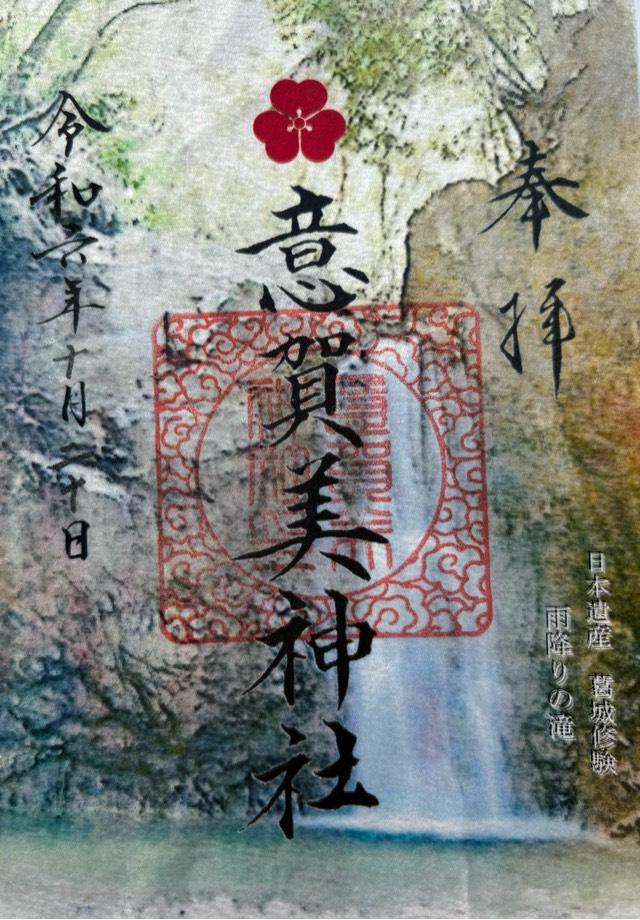 奉拝
意賀美神社
令和六年十月二十日
日本遺産　葛城修験
雨降りの滝